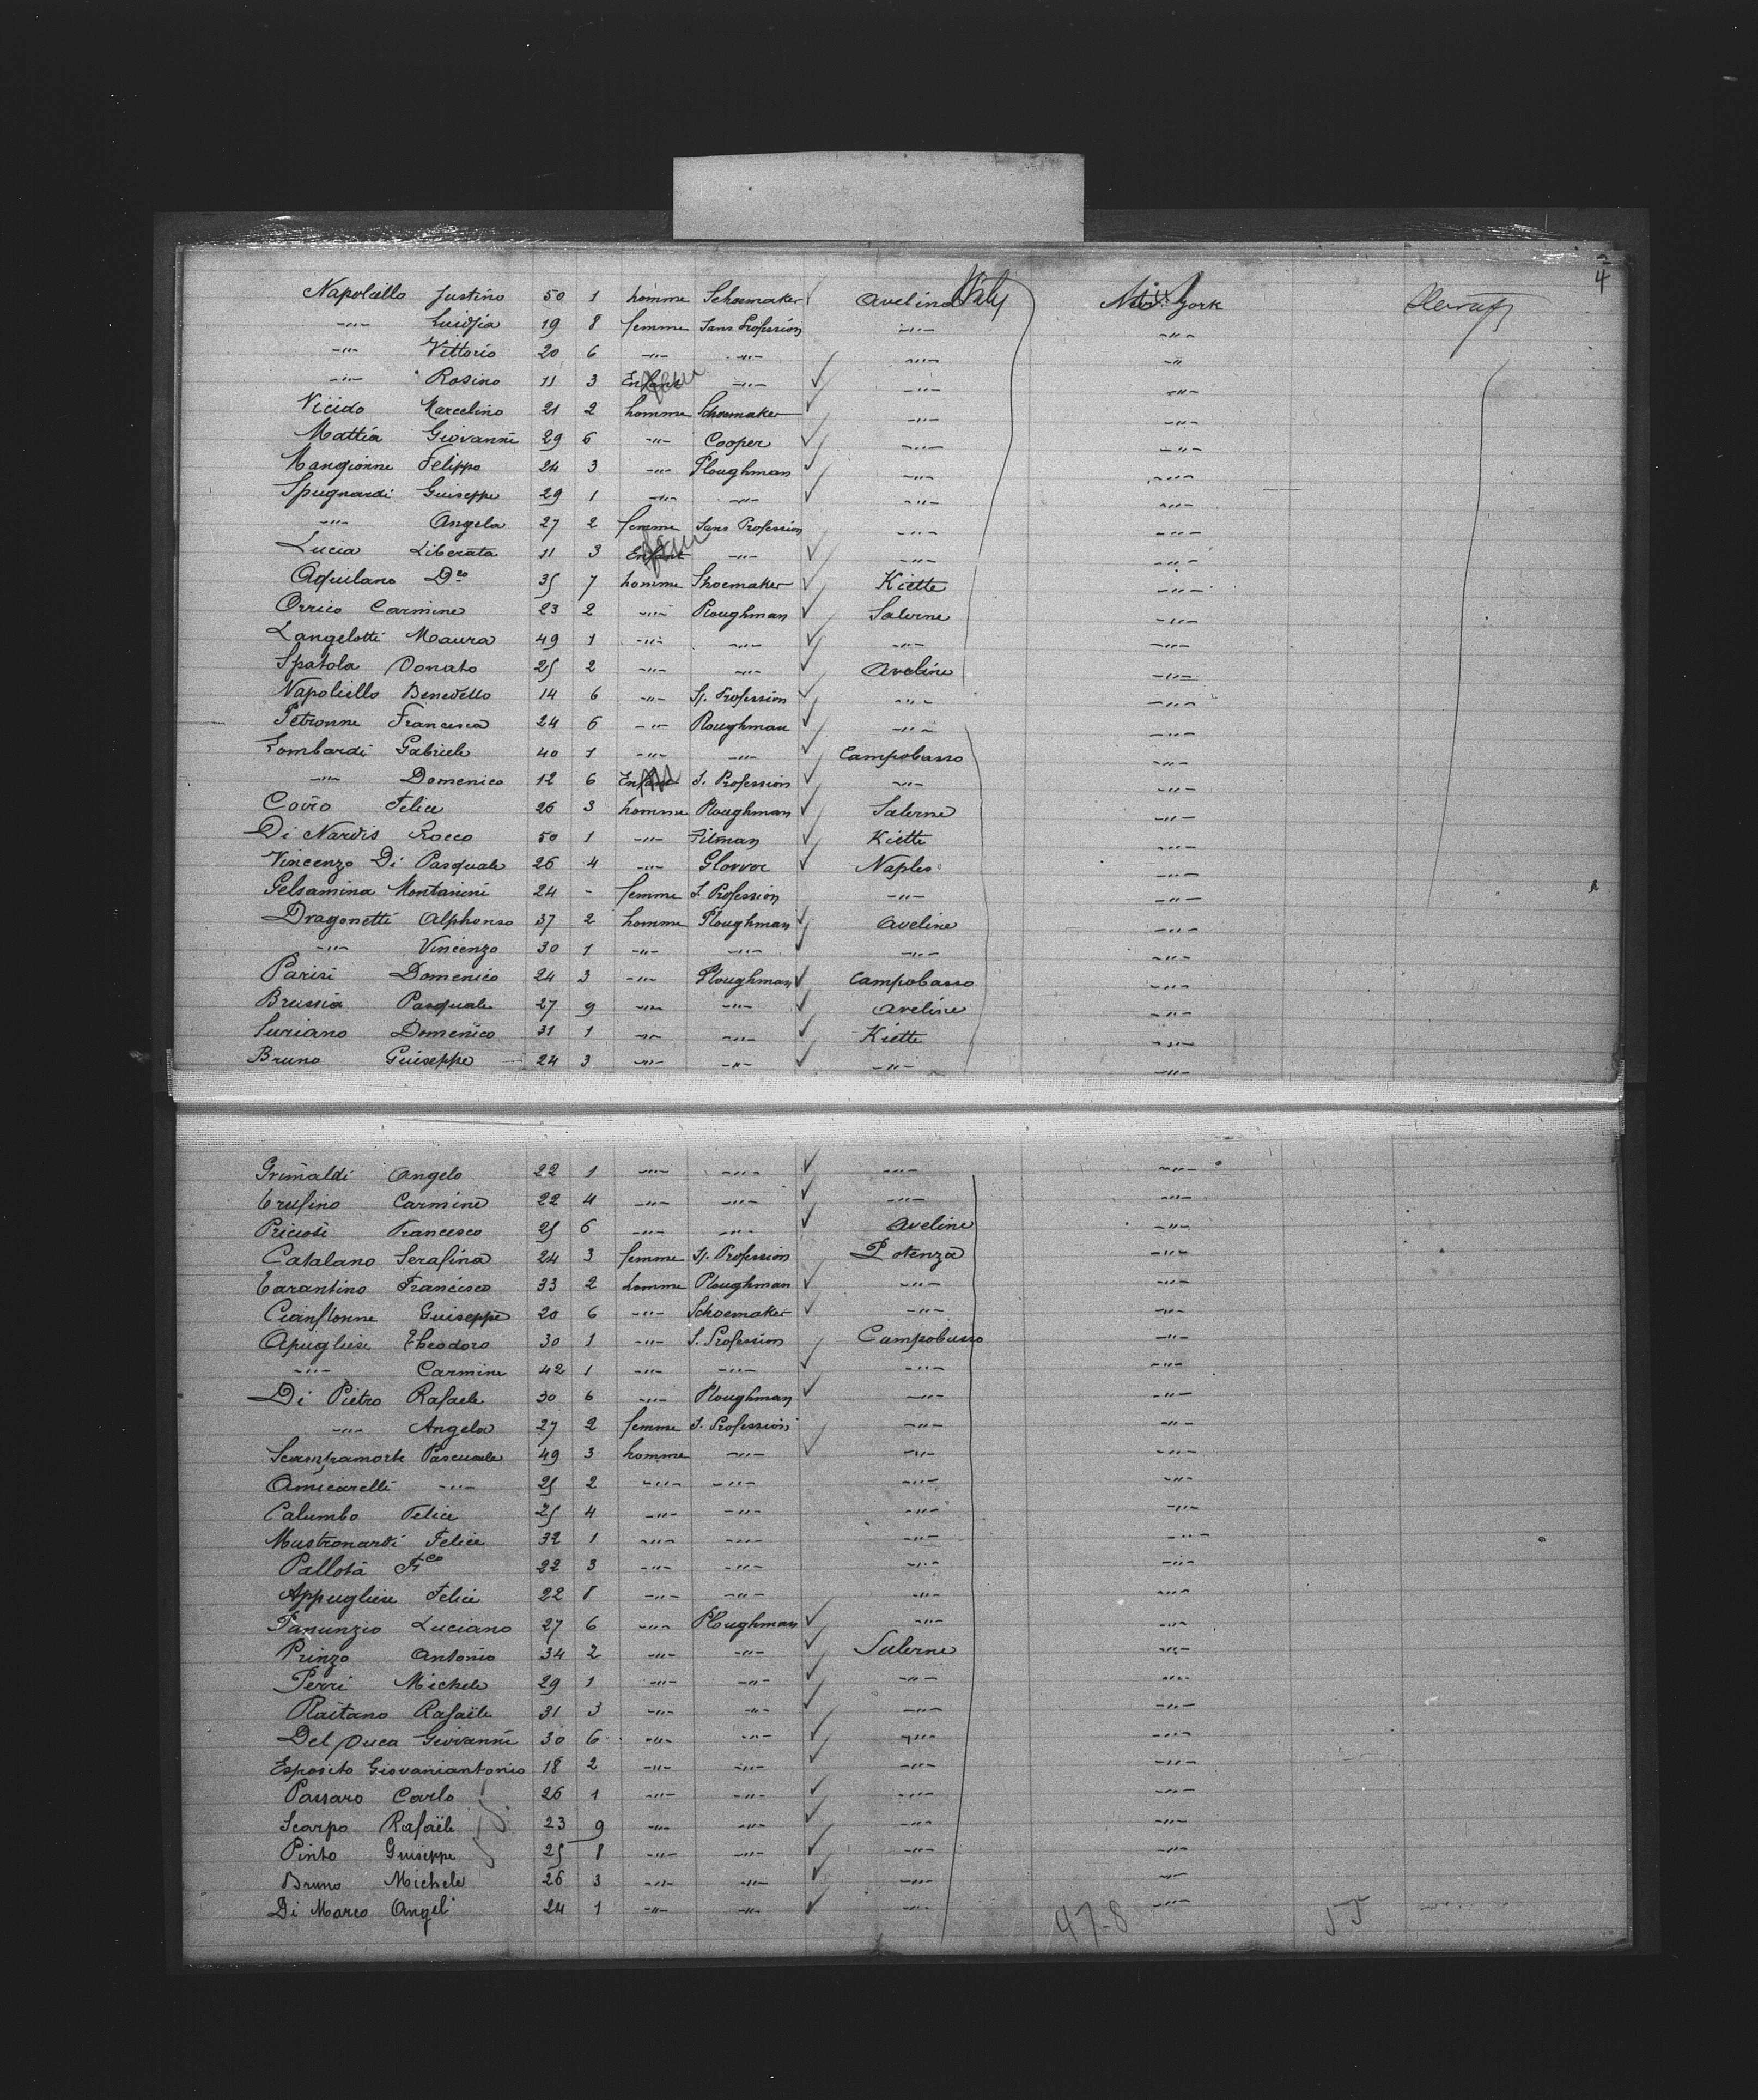 2
4
Napoliello Justino 50 1 homme Schoemaker ✓ Avelino Italy New York
-"- 19 8 femme Sans Profession -"- -"-
-"- Vittorio 20 6 -"- -"- ✓ -"- -"-
-"- Rosino 11 3 Enfant -"- ✓ -"- -"-
Marcelino 21 2 homme Schoemaker ✓ -"- -"-
Mattia Giovanni 29 6 -"- Cooper ✓ -"- -"-
Mangionne Felippo 24 3 -"- Ploughman ✓ -"- -"-
Spugnardi Guiseppe 29 1 -"- -"- ✓ -"- -"-
-"- Angela 27 2 femme Sans Profession -"- -"-
Lucia Liberata 11 3 Enfant -"- ✓ -"- -"-
Aquilano Dco 35 7 homme Shoemaker ✓ Kiette -"-
Orrico Carmine 23 2 -"- Ploughman ✓ Salerne -"-
Langelotti Maura 49 1 -"- -"- ✓ -"- -"-
Spatola Donato 25 2 -"- -"- ✓ Aveline -"-
Napoliello Benedetto 14 6 -"- S. Profession ✓ -"- -"-
Petronne Francesca 24 6 -"- Ploughman ✓ -"- -"-
Lombardi Gabriele 40 1 -"- -"- ✓ Campobasso -"-
-"- Domenico 12 6 Enfant S. Profession ✓ -"- -"-
Felice 26 3 homme Ploughman ✓ Salerne -"-
Di Nardis Rocco 50 1 -"- ✓ Kiette -"-
Vincenzo Di Pasquale 26 4 -"- ✓ Naples -"-
Gelsamina Montanini 24 - femme S. Profession -"- -"-
Dragonetti Alphonso 37 2 homme Ploughman ✓ Aveline -"-
-"- Vincenzo 30 1 -"- -"- ✓ -"- -"-
Parisi Domenico 24 3 -"- Ploughman ✓ Campobasso -"-
Brussia Pasquale 27 9 -"- -"- ✓ Aveline -"-
Suriano Domenico 31 1 -"- -"- ✓ Kiette -"-
Bruno Guiseppe 24 3 -"- -"- ✓ -"- -"-
Grimaldi Angelo 22 1 -"- -"- ✓ -"- -"-
Carmine 22 4 -"- -"- ✓ -"- -"-
Francesco 25 6 -"- -"- ✓ Aveline -"-
Catalano Serafina 24 3 femme S. Profession Potenza -"-
Tarantino Francisco 33 2 homme Ploughman ✓ -"- -"-
Guiseppe 20 6 -"- Schoemaker ✓ -"- -"-
Apugliese Theodoro 30 1 -"- S. Profession ✓ Campobasso -"-
-"- Carmine 42 1 -"- -"- ✓ -"- -"-
Di Pietro Rafaele 30 6 -"- Ploughman ✓ -"- -"-
-"- Angela 27 2 femme S. Profession ✓ -"- -"-
Scampamorte Pascuale 49 3 homme -"- ✓ -"- -"-
Amicarelli -"- 25 2 -"- -"- -"- -"-
Calumbo Felice 25 4 -"- -"- -"- -"-
Mastronardi Felice 32 1 -"- -"- -"- -"-
Pallota Fco 22 3 -"- -"- -"- -"-
Appugliese Felice 22 8 -"- -"- -"- -"-
Panunzio Luciano 27 6 -"- Ploughman ✓ -"- -"-
Prinzo Antonio 34 2 -"- -"- ✓ Salerne -"-
Perri Michele 29 1 -"- -"- ✓ -"- -"-
Raïtano Rafaële 31 3 -"- -"- ✓ -"- -"-
Del Duca Giovanni 30 6 -"- -"- ✓ -"- -"-
Esposito Giovaniantonio 18 2 -"- -"- ✓ -"- -"-
Passaro Carlo 26 1 -"- -"- ✓ -"- -"-
Scarpo Rafaële 23 9 -"- -"- ✓ -"- -"-
Pinto Guiseppe 25 8 -"- -"- ✓ -"- -"-
Bruno Michele 26 3 -"- -"- ✓ -"- -"-
Di Marco Angel 24 1 -"- -"- ✓ -"- -"-
47-8 55